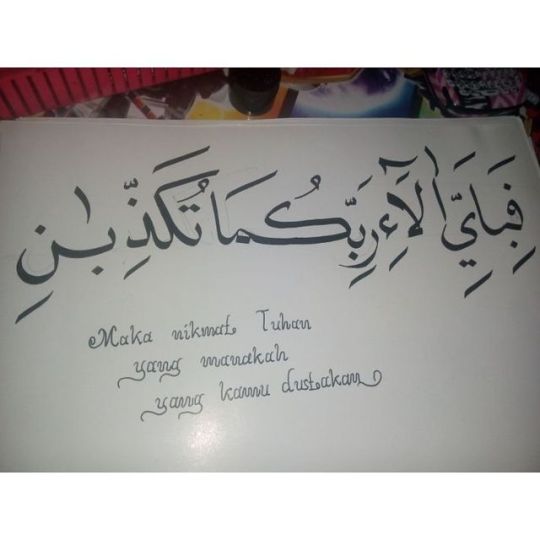 فَبِأَيِّ آلَاءِ رَبِّكُمَا تُكَذِّبَانِ
Maka nikmat Tuhan
yang manakah
yang kamu dustakan